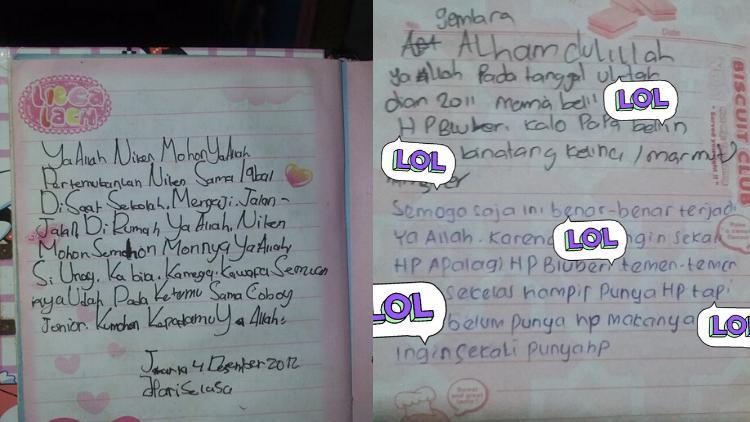 Licca
Ya Allah Niken Mohon Ya Allah
Pertemukanlah Niken Sama Iqbal
Di Saat Sekolah. Mengaji. Jalan-
Jalan Di Rumah Ya Allah. Niken
Mohon Semohon Monnya Ya Allah
Si Kabia. Kawapa Semuan
nya Udah Pada Ketemu Sama Coboy
Junior. Kumohon KepadaMu Ya Allah:
4 Desember 2012
Hari Selasa
gembara
Date
Alhamdulillah
ya Allah Pada tanggal ulntah
dian 2011 mama beli LOL
HP Bluber. kalo Papa beliin
LOL binatang kelinci / marmut
Semoga saja ini benar-benar terjadi
Ya Allah. karena LOL ingin sekali
HP APalagi HP Bluberi temen-temen
LOL sekelas hampir Punya HP tapi
belum Punya hp makanya LOL
ingin sekali punya hp
BISCUIT CLUB